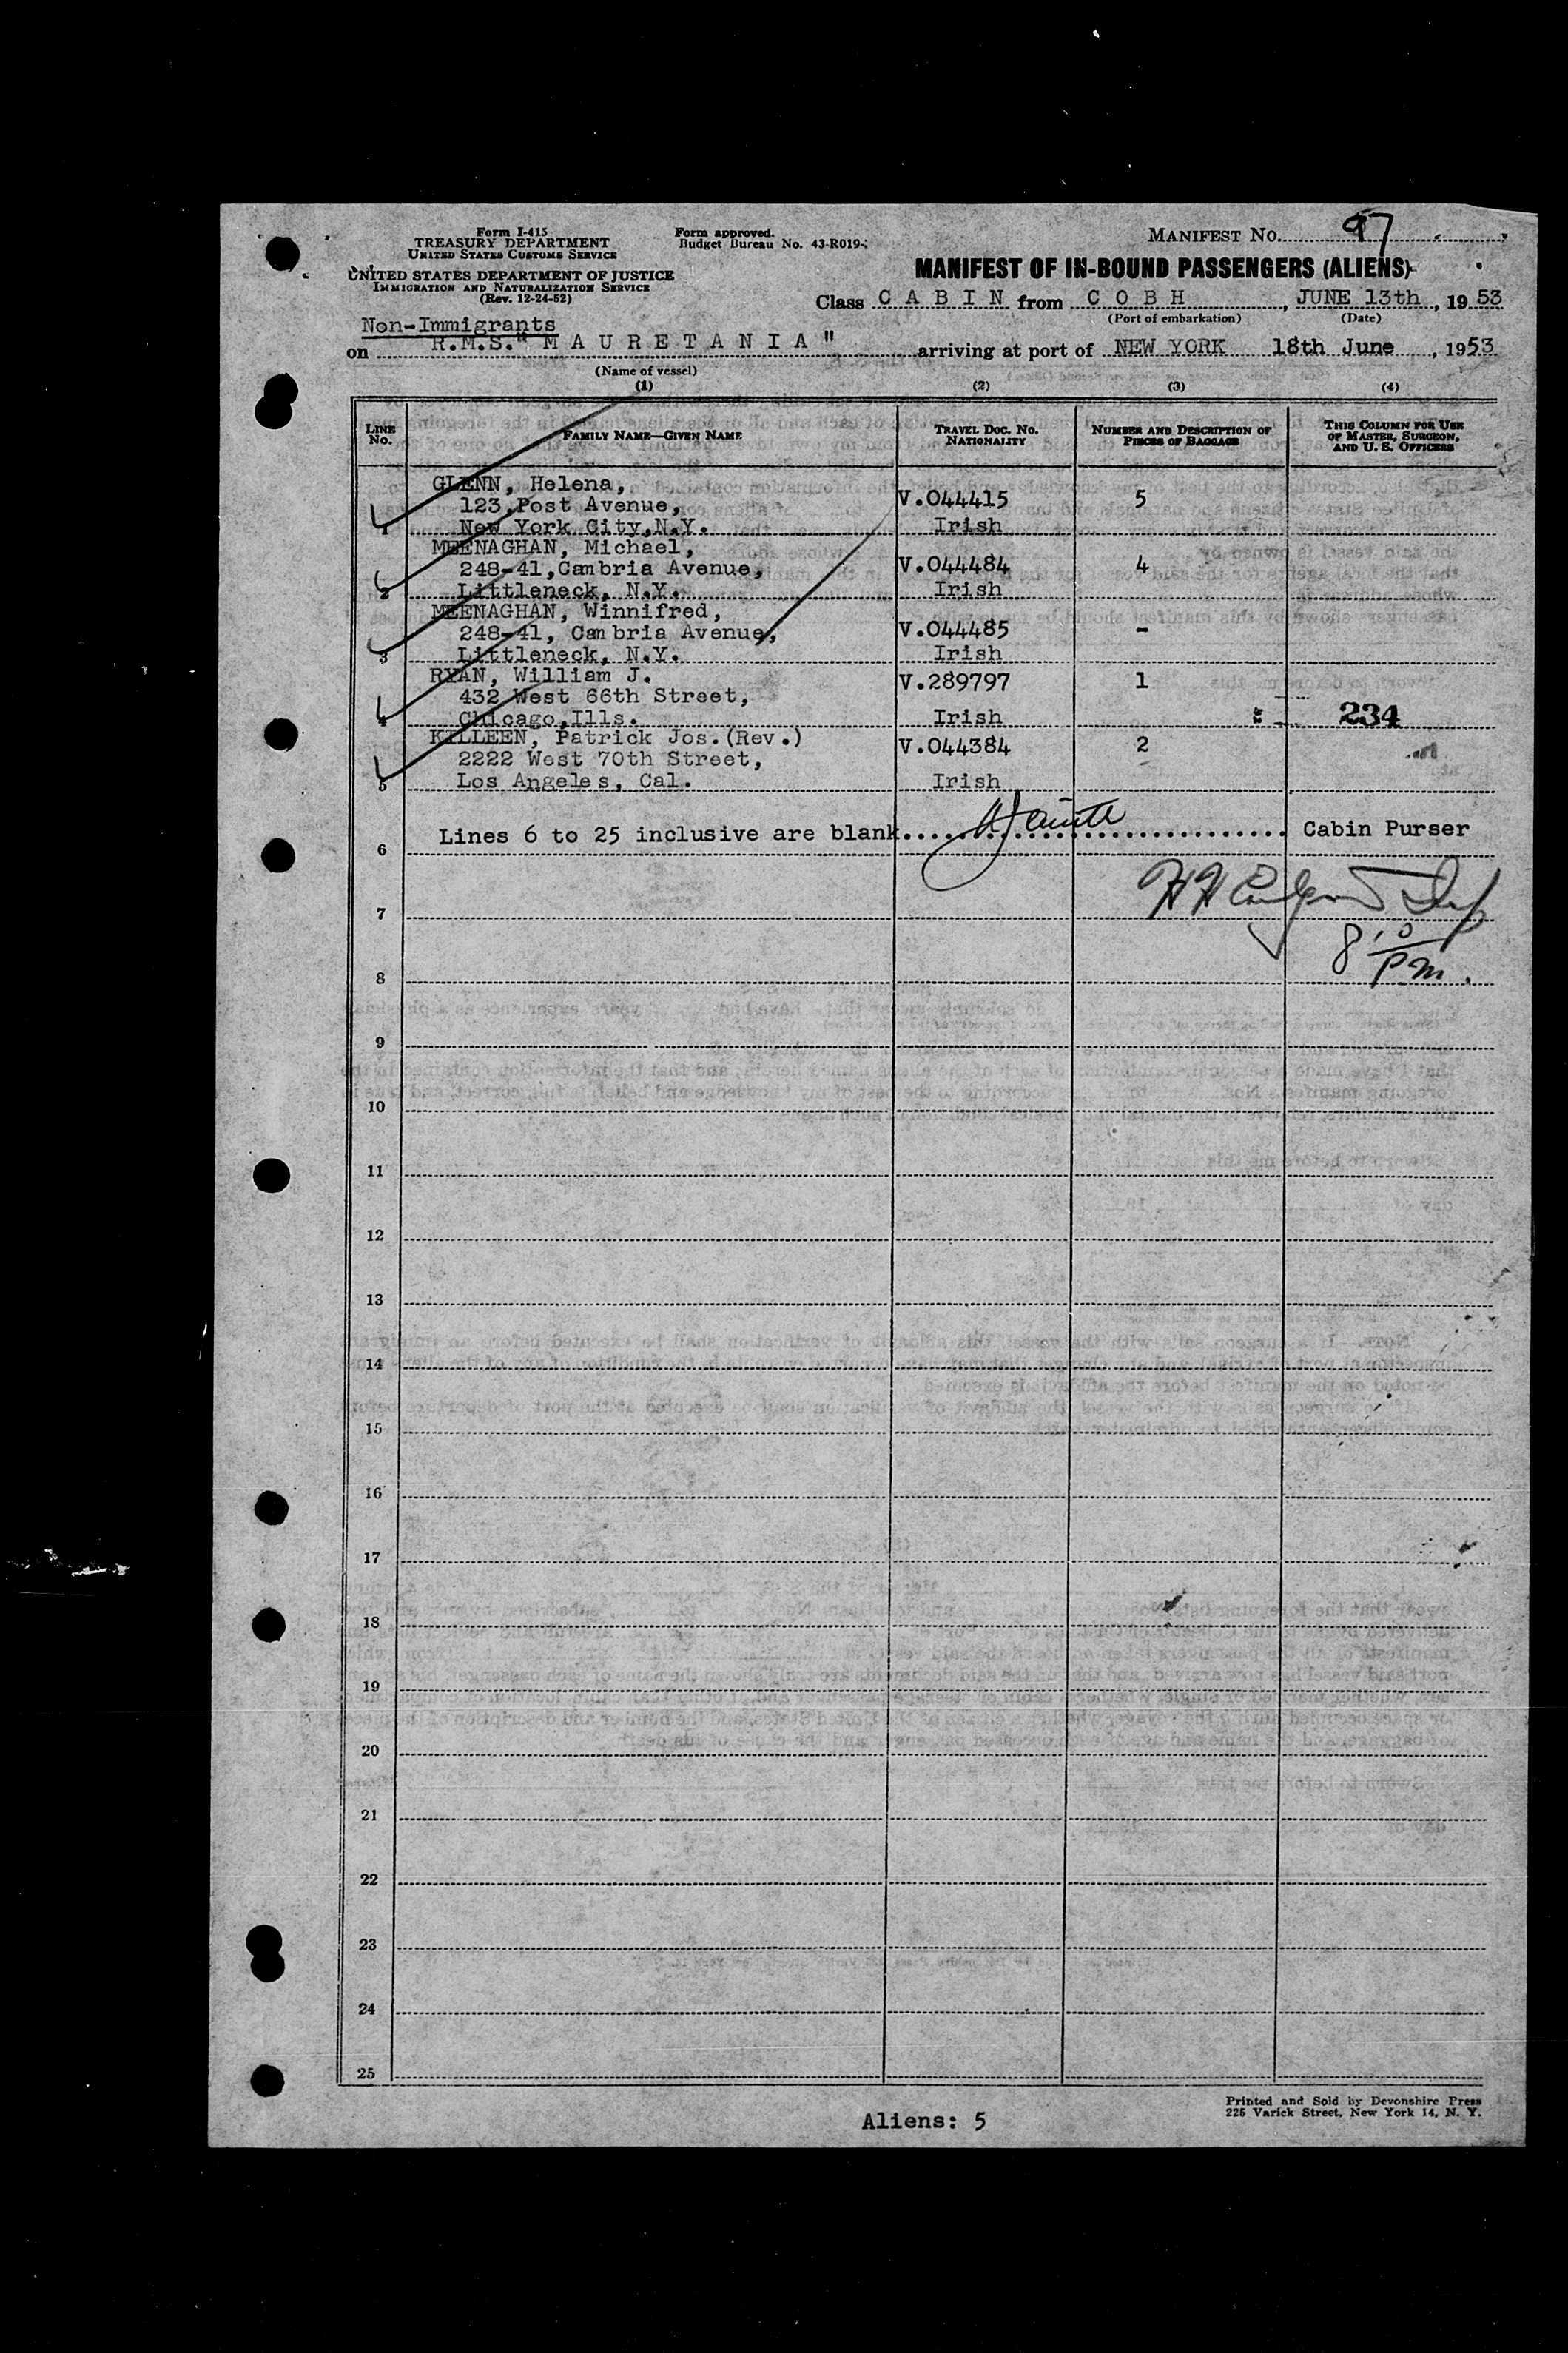 Form I-415
TREASURY DEPARTMENT
UNITED STATES CUSTOMS SERVICE
UNITED STATES DEPARTMENT OF JUSTICE
IMMIGRATION AND NATURALIZATION SERVICE
(Rev. 12-24-52)
Form approved.
Budget Bureau No. 43-R019-
MANIFEST NO. 97
MANIFEST OF IN-BOUND PASSENGERS (ALIENS)
Class C A B I N from C O B H, JUNE 13th, 19 53
(Port of embarkation) (Date)
Non-Immigrants
on R.M.S." M A U R E T A N I A ", arriving at port of NEW YORK 18th June, 1953
(Name of vessel)
(1) (2) (3) (4)
LINE No. FAMILY NAME—GIVEN NAME TRAVEL DOC. NO. NATIONALITY NUMBER AND DESCRIPTION OF PIECES OF BAGGAGE THIS COLUMN FOR USE OF MASTER, SURGEON, AND U. S. OFFICERS
GLENN, Helena,
123, Post Avenue, V.044415 5
1 New York City,N.Y. Irish
MEENAGHAN, Michael,
248-41,Cambria Avenue, V.044484 4
2 Littleneck, N.Y. Irish
MEENAGHAN, Winnifred,
248-41, Cambria Avenue, V.044485 -
3 Littleneck, N.Y. Irish
RYAN, William J. V.289797 1
432 West 66th Street,
4 Chicago,Ills. Irish 234
KILLEEN, Patrick Jos.(Rev.) V.044384 2
2222 West 70th Street,
5 Los Angeles, Cal. Irish
Lines 6 to 25 inclusive are blank. Cabin Purser
6
7
8 P.m.
9
10
11
12
13
14
15
16
17
18
19
20
21
22
23
24
25
Aliens: 5
Printed and Sold by Devonshire Press
225 Varick Street, New York 14, N. Y.